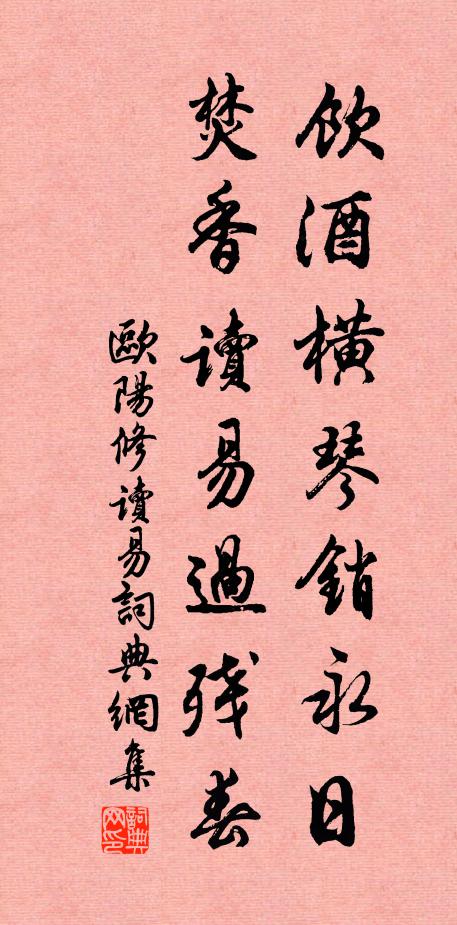 飲酒橫琴銷永日
焚香讀易過殘春
歐陽修讀易詞典網集
詞典網印